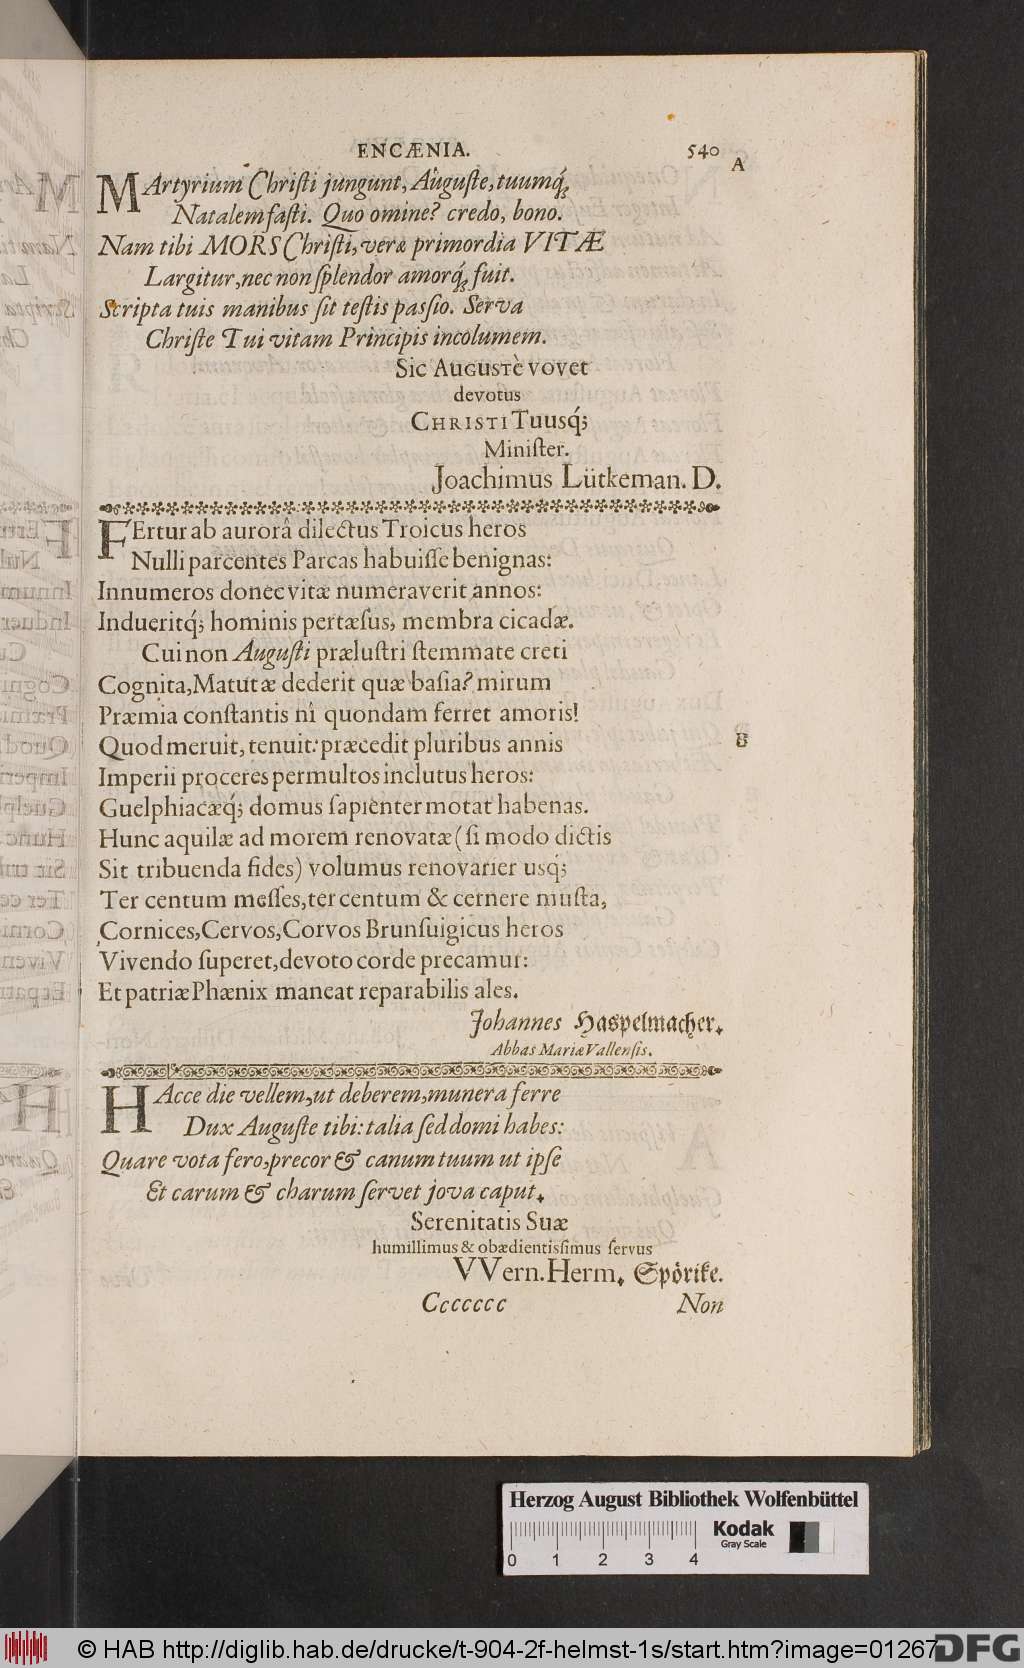 ENCÆNIA. 540
A
MArtyrium Chriſti jungunt, Auguſte, tuumq́;
Natalem faſti. Quo omine? credo, bono.
Nam tibi MORS Chriſti, veræ primordia VITÆ
Largitur, nec non ſplendor amorq́; fuit.
Scripta tuis manibus ſit teſtis paſsio. Serva
Chriſte Tui vitam Principis incolumem.
Sic AUGUSTÈ vovet
devotus
CHRISTI Tuusq́;
Miniſter.
Joachimus Lütkeman. D.
FErtur ab aurorâ dilectus Troicus heros
Nulli parcentes Parcas habuiſſe benignas:
Innumeros donec vitæ numeraverit annos:
Indueritq́; hominis pertæſus, membra cicadæ.
Cui non Auguſti præluſtri ſtemmate creti
Cognita, Matutæ dederit quæ baſia? mirum
Præmia conſtantis nî quondam ferret amoris!
Quod meruit, tenuit: præcedit pluribus annis
B
Imperii proceres permultos inclutus heros:
Guelphiacæq́; domus ſapienter motat habenas.
Hunc aquilæ ad morem renovatæ (ſi modo dictis
Sit tribuenda fides) volumus renovarier usq́;
Ter centum meſſes, ter centum & cernere muſta,
Cornices, Cervos, Corvos Brunſuigicus heros
Vivendo ſuperet, devoto corde precamur:
Et patriæ Phænix maneat reparabilis ales.
Johannes Haspelmacher.
Abbas Mariæ Vallenſis.
HAcce die vellem, ut deberem, munera ferre
Dux Auguſte tibi: talia ſed domi habes:
Quare vota fero, precor & canum tuum ut ipſe
Et carum & charum ſervet jova caput.
Serenitatis Suæ
humillimus & obædientiſsimus ſervus
VVern. Herm. Spörike.
Ccccccc Non
Herzog August Bibliothek Wolfenbüttel
0 1 2 3 4
Kodak
Gray Scale
© HAB http://diglib.hab.de/drucke/t-904-2f-helmst-1s/start.htm?image=01267
DFG